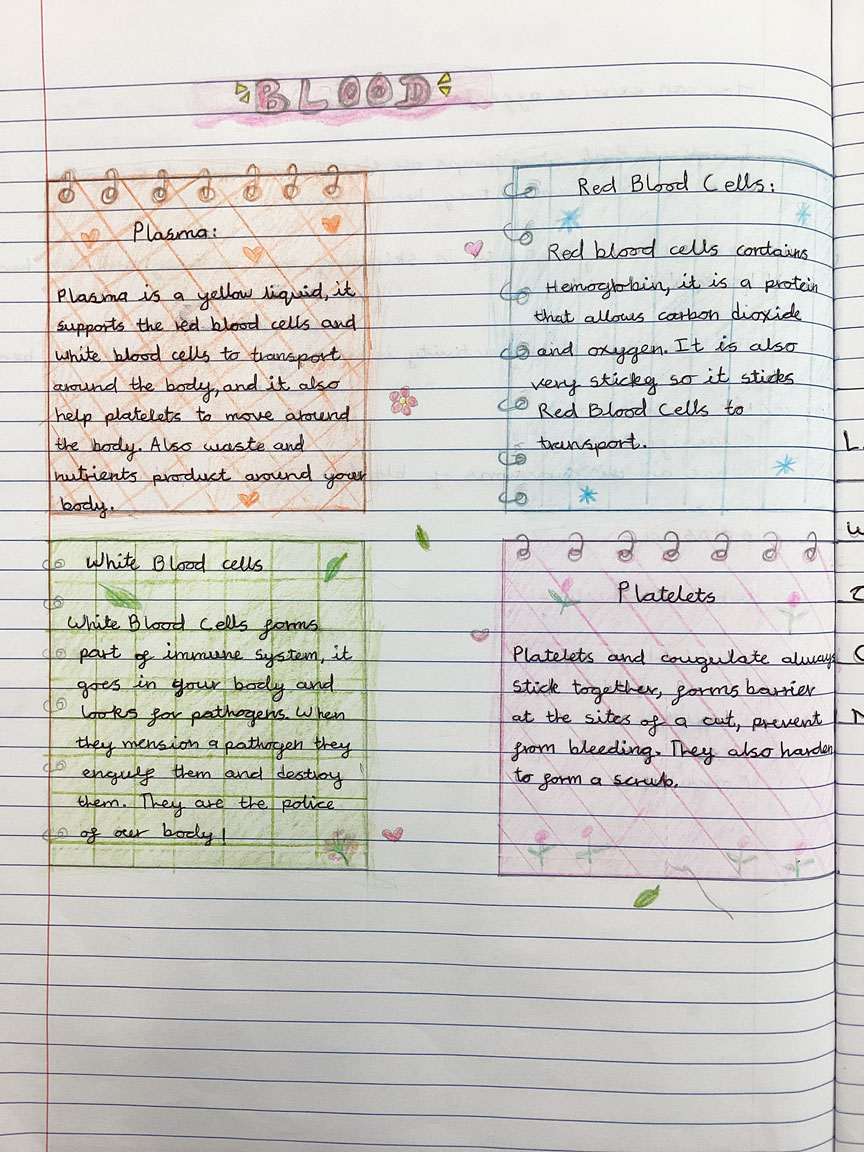 BLOOD
Plasma:
Plasma is a yellow liquid, it
supports the red blood cells and
white blood cells to transport
around the body, and it also
help platelets to move around
the body. Also waste and
nutrients product around your
body.
Red Blood Cells:
Red blood cells contains
Hemoglobin, it is a protein
that allows carbon dioxide
and oxygen. It is also
very stickey so it sticks
Red Blood Cells to
transport.
White Blood cells
White Blood Cells forms
part of immune system, it
goes in your body and
looks for pathogens. When
they mension a pathogen they
engulf them and destroy
them. They are the police
of our body!
Platelets
Platelets and cougulate always
stick together, forms barrier
at the sites of a cut, prevent
from bleeding. They also harden
to form a scrub.